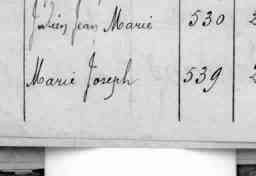 Julien Jean Marie 530 2
Marie Joseph 539 2